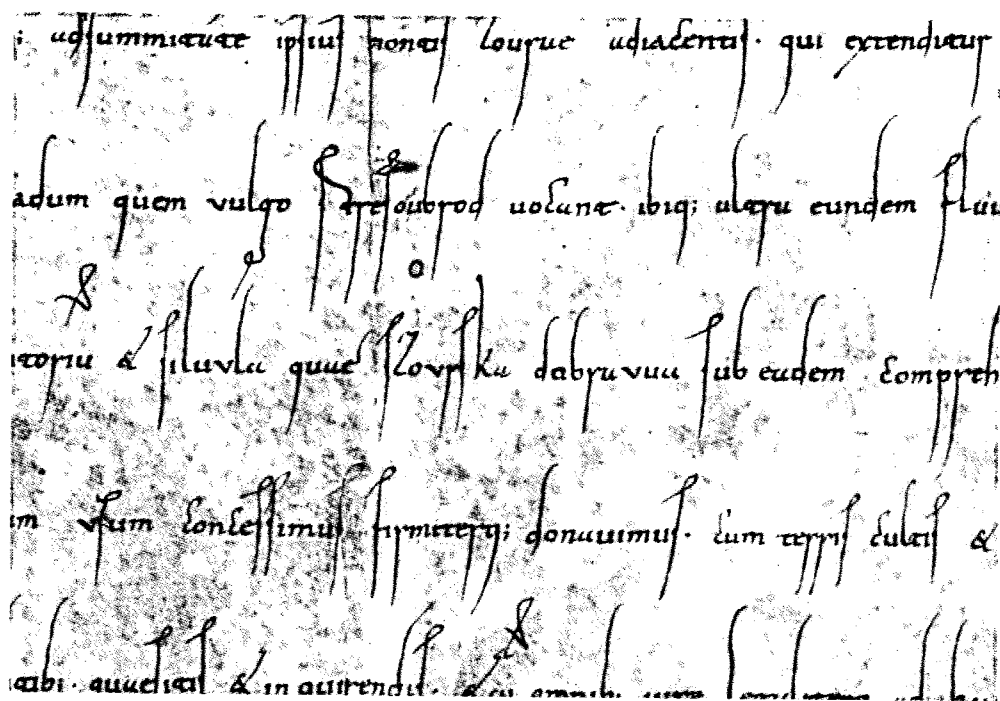 ; ad summitate ipsius montis lousue adiacentis · qui extenditur
adum quem vulgo stresoubrod uocant · ibiq; ultra eundem fluui
itoriu & siluula quae dabrauua sub eadem compreh
m vsum concessimus firmiterq; donauimus · cum terris cultis &
& inquirendis · & cu